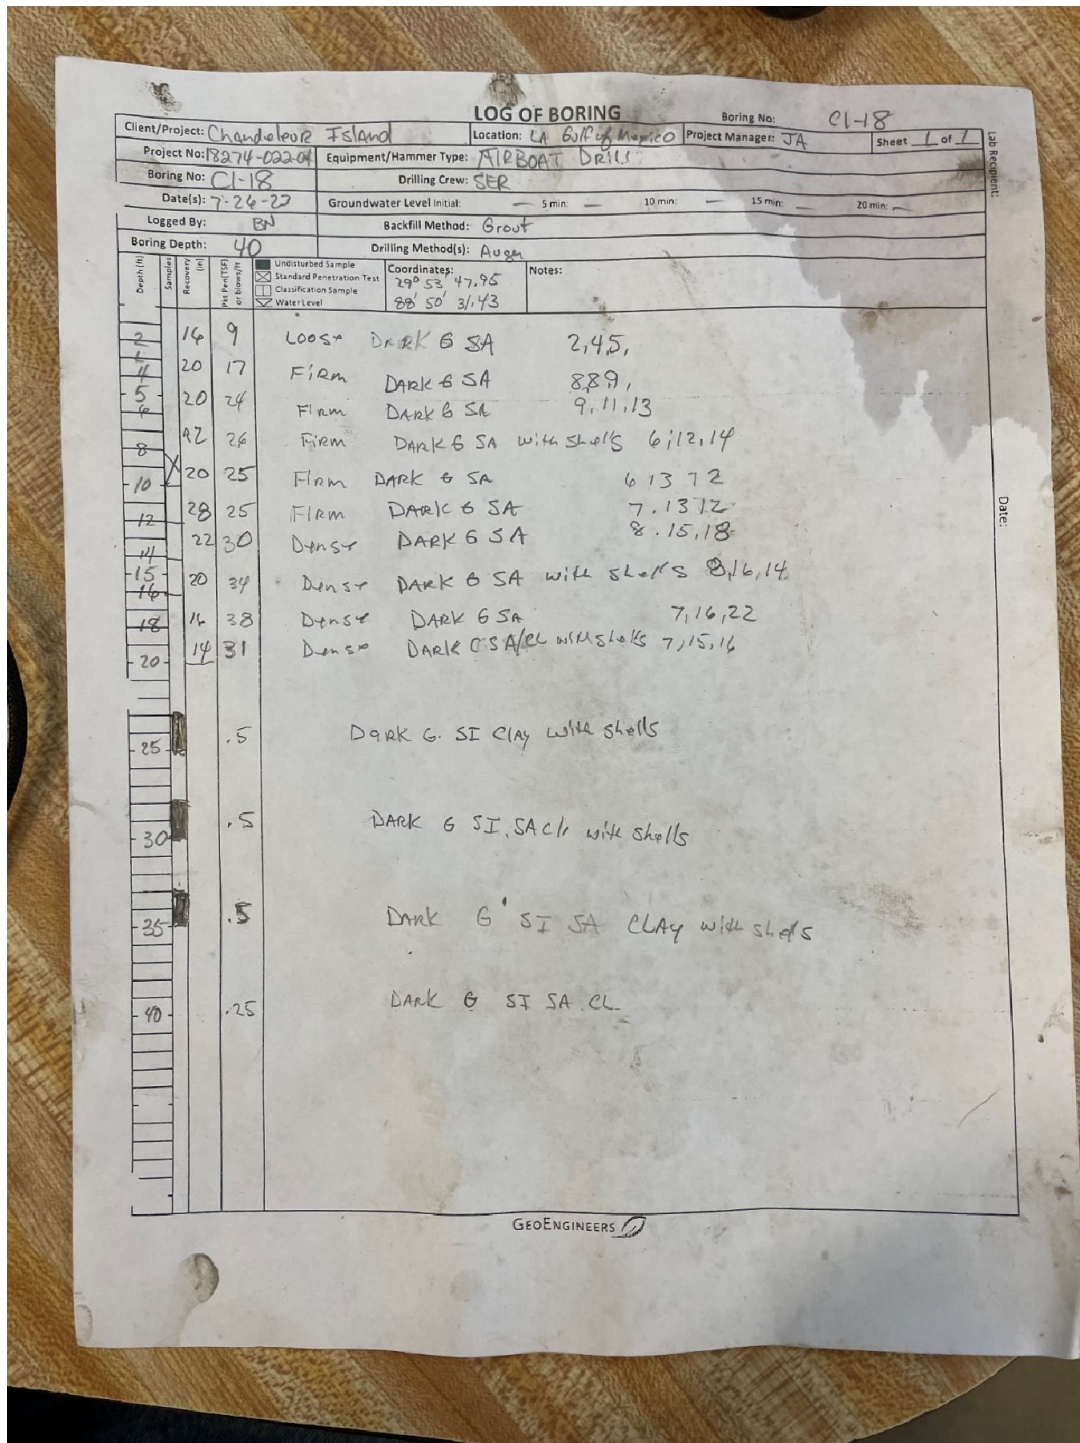 LOG OF BORING Boring No: CI-18
Client/Project: Chandeleur Island Location: LA Gulf of Mexico Project Manager: JA Sheet 1 of 1
Project No: 18274-022-04 Equipment/Hammer Type: AIRBOAT DRILL
Boring No: CI-18 Drilling Crew: SER
Date(s): 7-26-23 Groundwater Level Initial: — 5 min: — 10 min: — 15 min: — 20 min: —
Logged By: BN Backfill Method: Grout
Boring Depth: 40 Drilling Method(s): Auger
Depth (ft) Samples Recovery (in) Pkt Pen(TSF) or blows/ft
Undisturbed Sample
Standard Penetration Test
Classification Sample
Water Level
Coordinates:
29° 53' 47.95
88' 50' 31.43
Notes:
Lab Recipient:
Date:
2 16 9 Loose DARK G SA 2,4,5,
4 20 17 FIRM DARK G SA 8,8,9,
5
6 20 24 FIRM DARK G SA 9,11,13
8 26 FIRM DARK G SA with shells 6,12,14
10 20 25 FIRM DARK G SA 6 13
12 28 25 FIRM DARK G SA 7.13 12
14 22 30 Dense DARK G SA 8.15,18
15
16 20 34 Dense DARK G SA with shells 8,16,14
18 16 38 Dense DARK G SA 7,16,22
20 14 31 Dense DARK G SA/CL with shells 7,15,16
25 .5 DARK G. SI CLAY with shells
30 .5 DARK G SI, SA with shells
35 .5 DARK G SI SA CLAY with shells
40 .25 DARK G SI SA CL
GEOENGINEERS